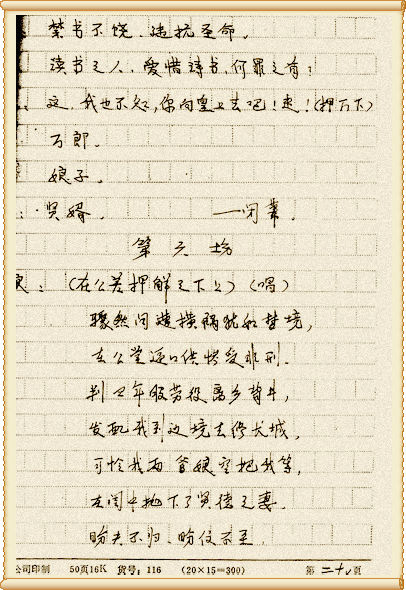 禁书不饶，违抗圣命。
读书之人，爱惜诗书，何罪之有！
这，我也不知，你向皇上去吧！走！（押万下）
万郎。
娘子。
：贤婿。 —闭幕。
第六场
：（在公差押解之下上）（唱）
骤然间遭横祸犹如梦境，
在公堂逼口供惨受非刑。
判四年服劳役离乡背井，
发配我到边境去修长城，
可怜我两爹娘空把我等，
在闺中抛下了贤德之妻。
盼夫不归，盼仅不至。
公司印制 50页16K 货号：116 （20×15=300） 第二十八页